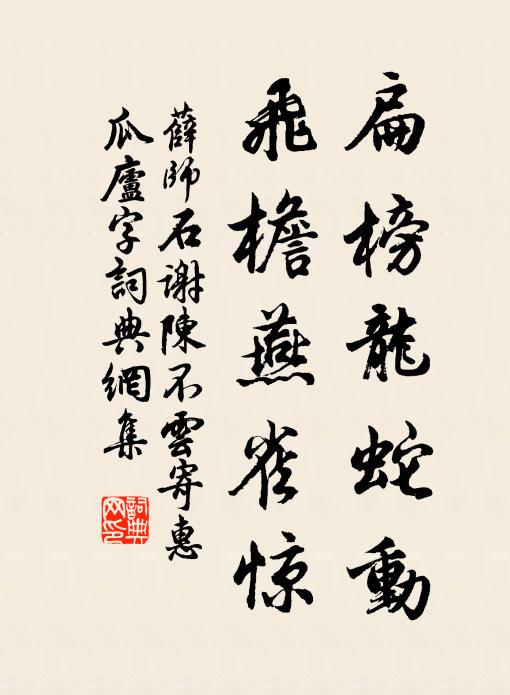 扁榜龍蛇動
飛檐燕雀惊
薛師石谢陳不雲寄惠
瓜廬字詞典網集
詞典网印